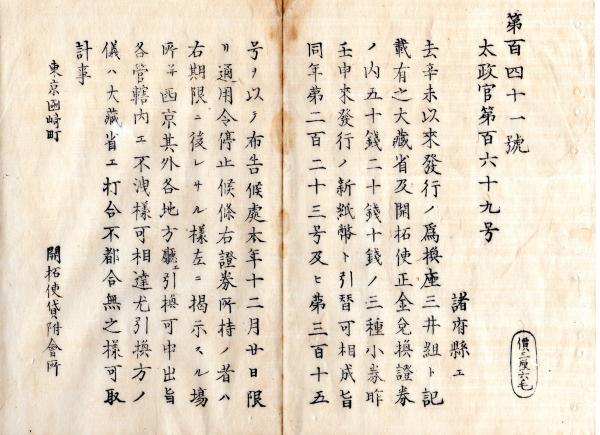 第百四十一號
太政官第百六十九号
諸府縣エ
價三厘六毛
去辛未以來發行ノ爲換座三井組ト記
載有之大藏省及開拓使正金兌換證券
ノ内五十錢二十錢十錢ノ三種小券昨
壬申來發行ノ新紙幣ト引替可相成旨
同年第二百二十三号及ヒ第三百十五
号ヲ以テ布告候處本年十二月廿日限
リ通用令停止候條右證券所持ノ者ハ
右期限ニ後レサル樣左ニ揭示スル場
所并西京其外各地方廳エ引換可申出旨
各管轄内エ不洩樣可相達尤引換方ノ
儀ハ大藏省エ打合不都合無之樣可取
計事
東京函崎町
開拓使貸附會所